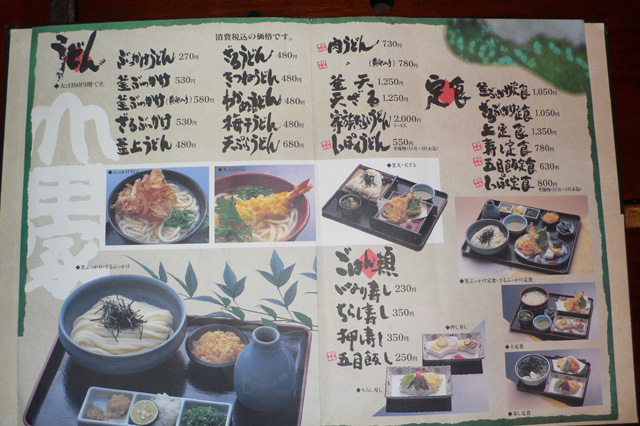 消費税込の価格です。
うどん
◆大は150円増です。
ぶっかけうどん 270円
釜ぶっかけ 530円
釜ぶっかけ 580円
ざるぶっかけ 530円
釜上うどん 480円
ざるうどん 480円
きつねうどん 480円
わかめうどん 480円
梅干うどん 480円
天ぷらうどん 680円
肉うどん 730円
780円
釜天 1,250円
天ざる 1,250円
家族うどん 2,000円
しっぽくうどん 550円
定食
釜ぶっかけ定食 1,050円
ざるぶっかけ定食 1,050円
上定食 1,350円
寿し定食 780円
五目飯定食 630円
しっぽく定食 800円
◆ぶっかけうどん
◆天ぷらうどん
◆釜天・天ざる
◆釜ぶっかけ・ざるぶっかけ
◆釜ぶっかけ定食・ざるぶっかけ定食
ごはん類
いなり寿し 230円
ちらし寿し 350円
押し寿し 350円
五目飯し 250円
◆押し寿し
◆ちらし寿し
◆上定食
◆寿し定食